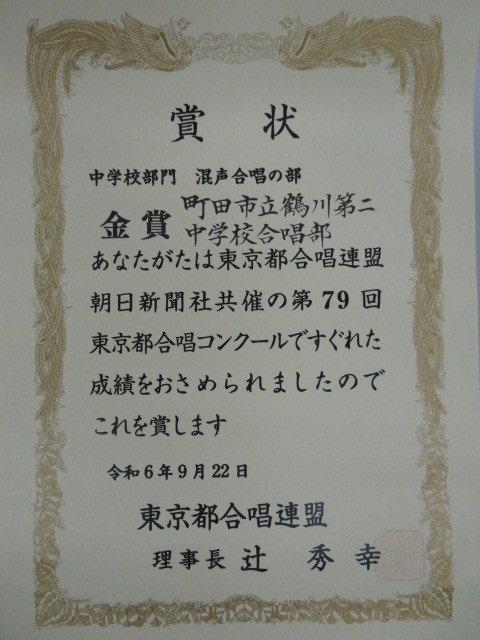 賞状
中学校部門 混声合唱の部
金賞 町田市立鶴川第二
中学校合唱部
あなたがたは東京都合唱連盟
朝日新聞社共催の第79回
東京都合唱コンクールですぐれた
成績をおさめられましたので
これを賞します
令和6年9月22日
東京都合唱連盟
理事長 辻 秀幸